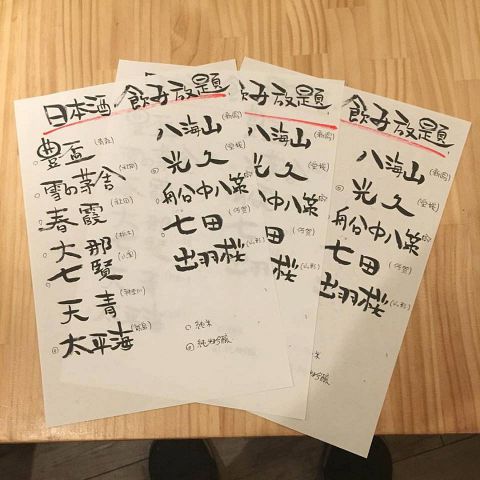 日本酒 飲み放題
豊盃 (青森)
雪の茅舎 (秋田)
春霞 (秋田)
大那 (栃木)
七賢 (山梨)
天青 (神奈川)
太平海 (茨城)
八海山 (新潟)
光久 (愛媛)
船中八策
七田 (佐賀)
出羽桜 (山形)
○ 純米
◎ 純米吟醸
飲み放題
八海山 (新潟)
光久 (愛媛)
船中八策
七田 (佐賀)
桜 (山形)
飲み放題
八海山 (新潟)
光久 (愛媛)
船中八策
七田 (佐賀)
出羽桜 (山形)
○ 純米
◎ 純米吟醸